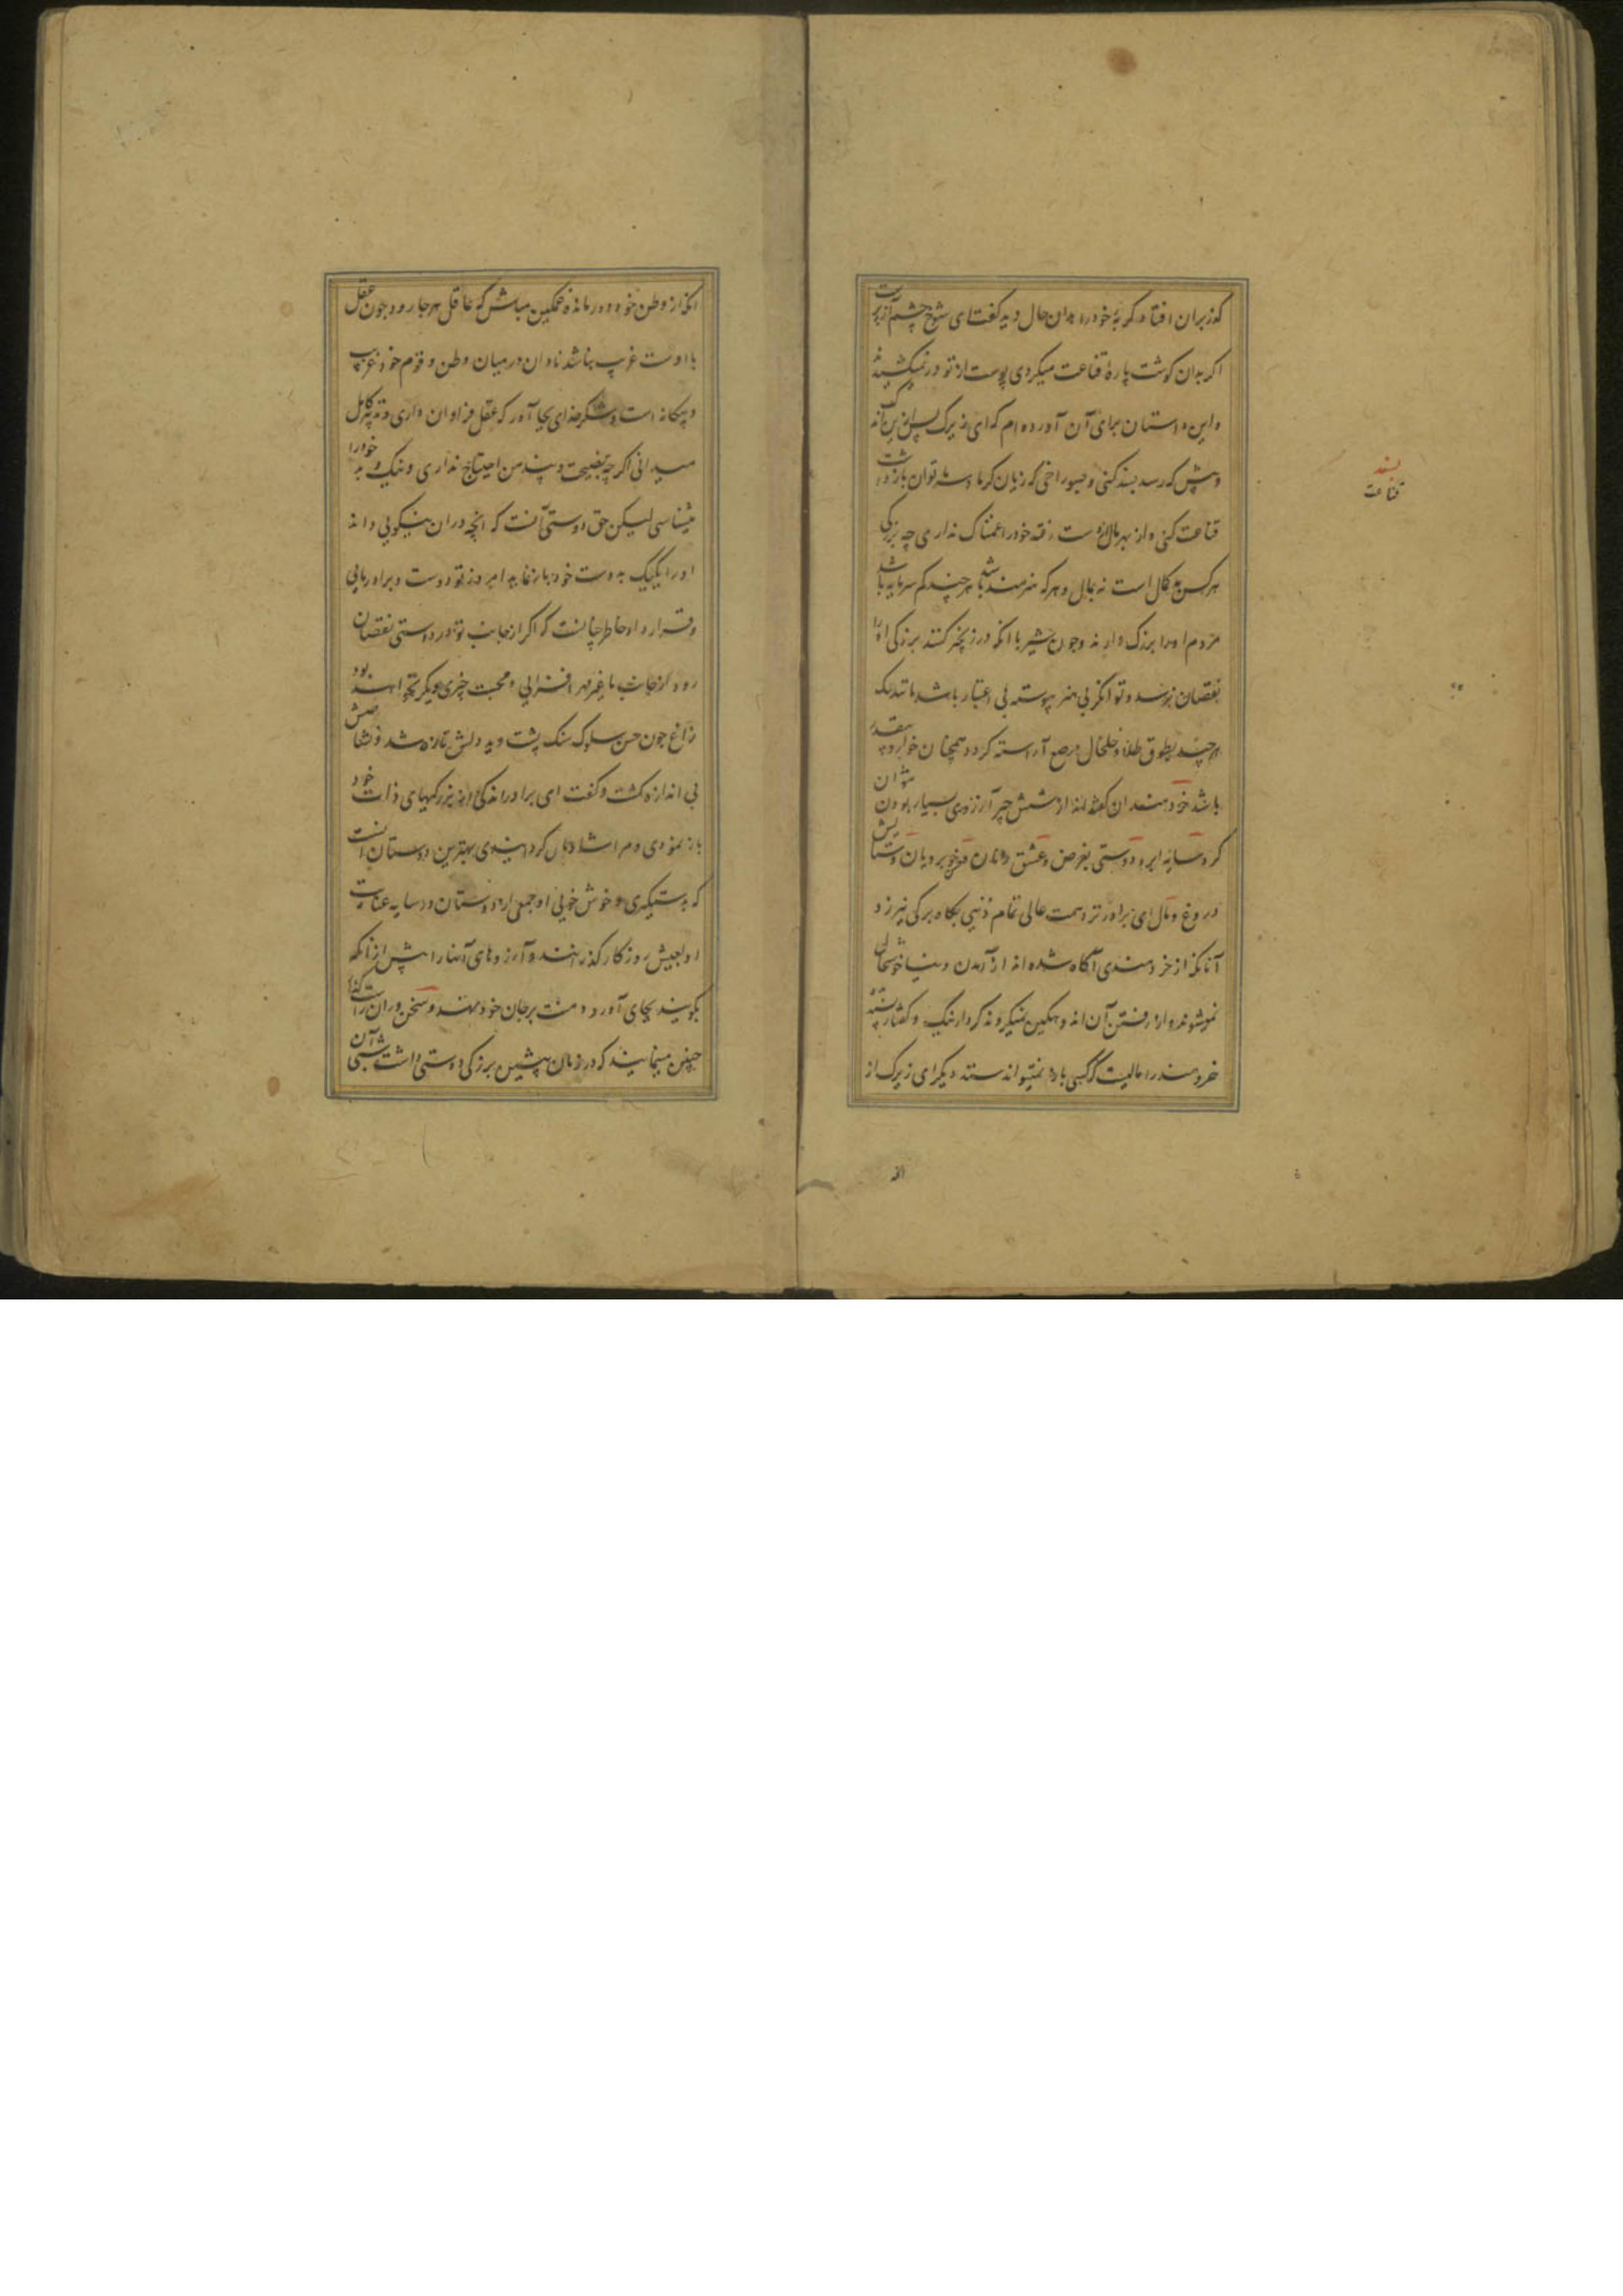 گذربران افتاد گربهٔ خود را بدان حال دید گفت ای شوخ چشم آزپرست
اگر بدان گوشت پاره قناعت میکردی پوست از تو در نمیکشیدند
و این داستان برای آن آورده ام که ای زیرک پس ازین بآنک
و پیش که رسد بسند کنی و بسوراخی که زیان گرما و سرما توان بازداشت
قناعت کنی و از بهر مال از دست رفته خود را غمناک نداری چه بزرگی
هر کس به کمال است نه بمال و هر که هنرمند باشد هر چند کم سرمایه باشد
مردم او را بزرگ دارند و چون شیر با آنکه در زنجیر کنند بزرگی او را
نقصان نرسد و توانگر بی هنر پیوسته بی اعتبار باشد مانند سگ
هر چند بطوق طلا و خلخال مرصع آراسته گردد همچنان خوار و بیقدر
باشد خردمندان گفته اند از شش چیز آرزوی بسیار بودن نتوان
کرد سایه ابر و دوستی بغرض و عشق زنان و خوبرویان و ستایش
دروغ و مال ای برادر نزد همت عالی تمام دنیی بکاه برگی نیرزد
آنانکه از خردمندی آگاه شده اند از آمدن دنیا خوشحال
نمیشوند و از رفتن آن اندوهگین نمیگردند کردار نیک و گفتار پسندیده
خردمند را مالیست که کسی باره نمیتواند ستد دیگر ای زیرک از
از
بسند
قناعت
آنکه از وطن خود دور مانده غمگین مباش که عاقل هر جا رود چون عقل
با اوست غریب نباشد نادان در میان وطن و قوم خود غریب
و بیگانه است و شکر خدای بجا آور که عقل فراوان داری و تدبیر کامل
میدانی اگر چه بنصیحت و پند من احتیاج نداری و نیک و بد خود را
میشناسی لیکن حق دوستی آنست که آنچه در آن نیکویی داند
او را یکیک بدوست خود باز نماید امروز تو دوست و برادر مایی
و قرارداد خاطر چنانست که اگر از جانب تو در دوستی نقصان
رود از جانب ما غیر مهر افزایی و محبت چیزی دیگر نخواهد بود
زاغ چون حسن سلوک سنگ پشت دید دلش تازه شد و نشاطش
بی اندازه گشت و گفت ای برادر اندکی از بزرگیهای ذات خود
باز نمودی و مرا شادمان گردانیدی بهترین دوستان آنست
که بدستگیری و خوش خویی او جمعی از دوستان در سایه عنایت
او بعیش روزگار گذرانند و آرزوهای آنها را پیش از آنکه
بگویند بجای آورد و منت بر جان خود نهد و سخنوران راست گفتار
چنین مینمایند که در زمان پیشین بزرگی دوستی داشت شبی آن